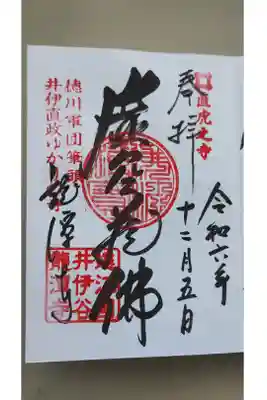 直虎之寺
令和六年
十二月五日
奉拝
虚空蔵佛
徳川軍団筆頭
井伊直政ゆか
龍潭寺
井伊谷
龍潭寺